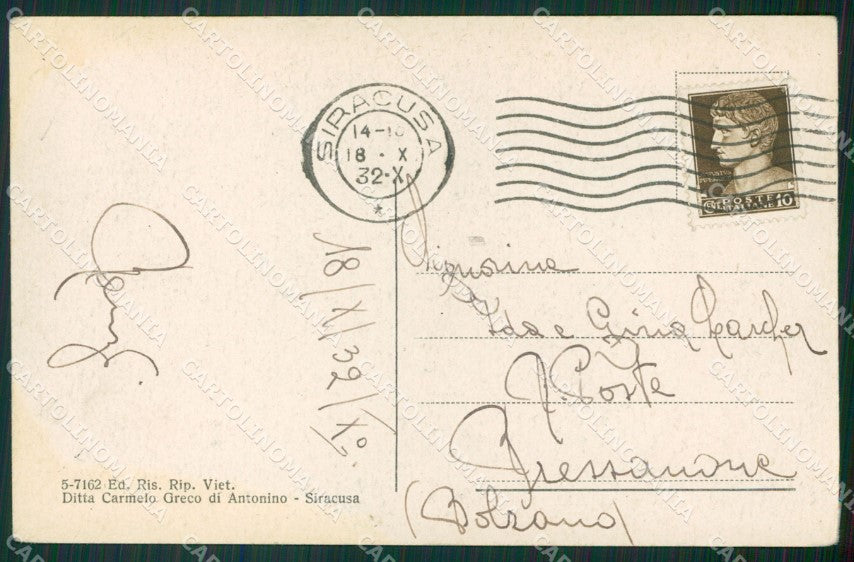 SIRACUSA
14-1
18 · X
32-X
*
POSTE
ITALIANE 10
18/X/32/X°
Signorine
Ida e Gina
Poste
Bressanone
(Bolzano)
5-7162 Ed. Ris. Rip. Viet.
Ditta Carmelo Greco di Antonino - Siracusa
CARTOLINOMANIA